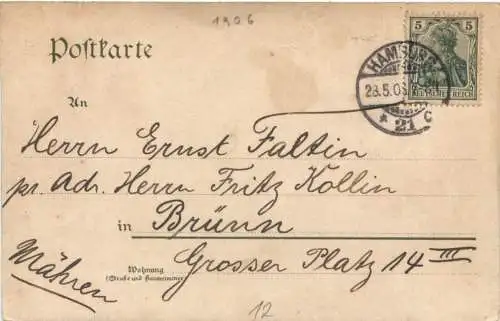 1906
Postkarte
5 5
DEUTSCHES REICH
HAMBURG
28.5.06
* 21 c
An
Herrn Ernst Faltin
pr. Adr. Herrn Fritz Kollin
in Brünn
Mähren
Wohnung
(Straße und Hausnummer)
Grosser Platz 14 III
12